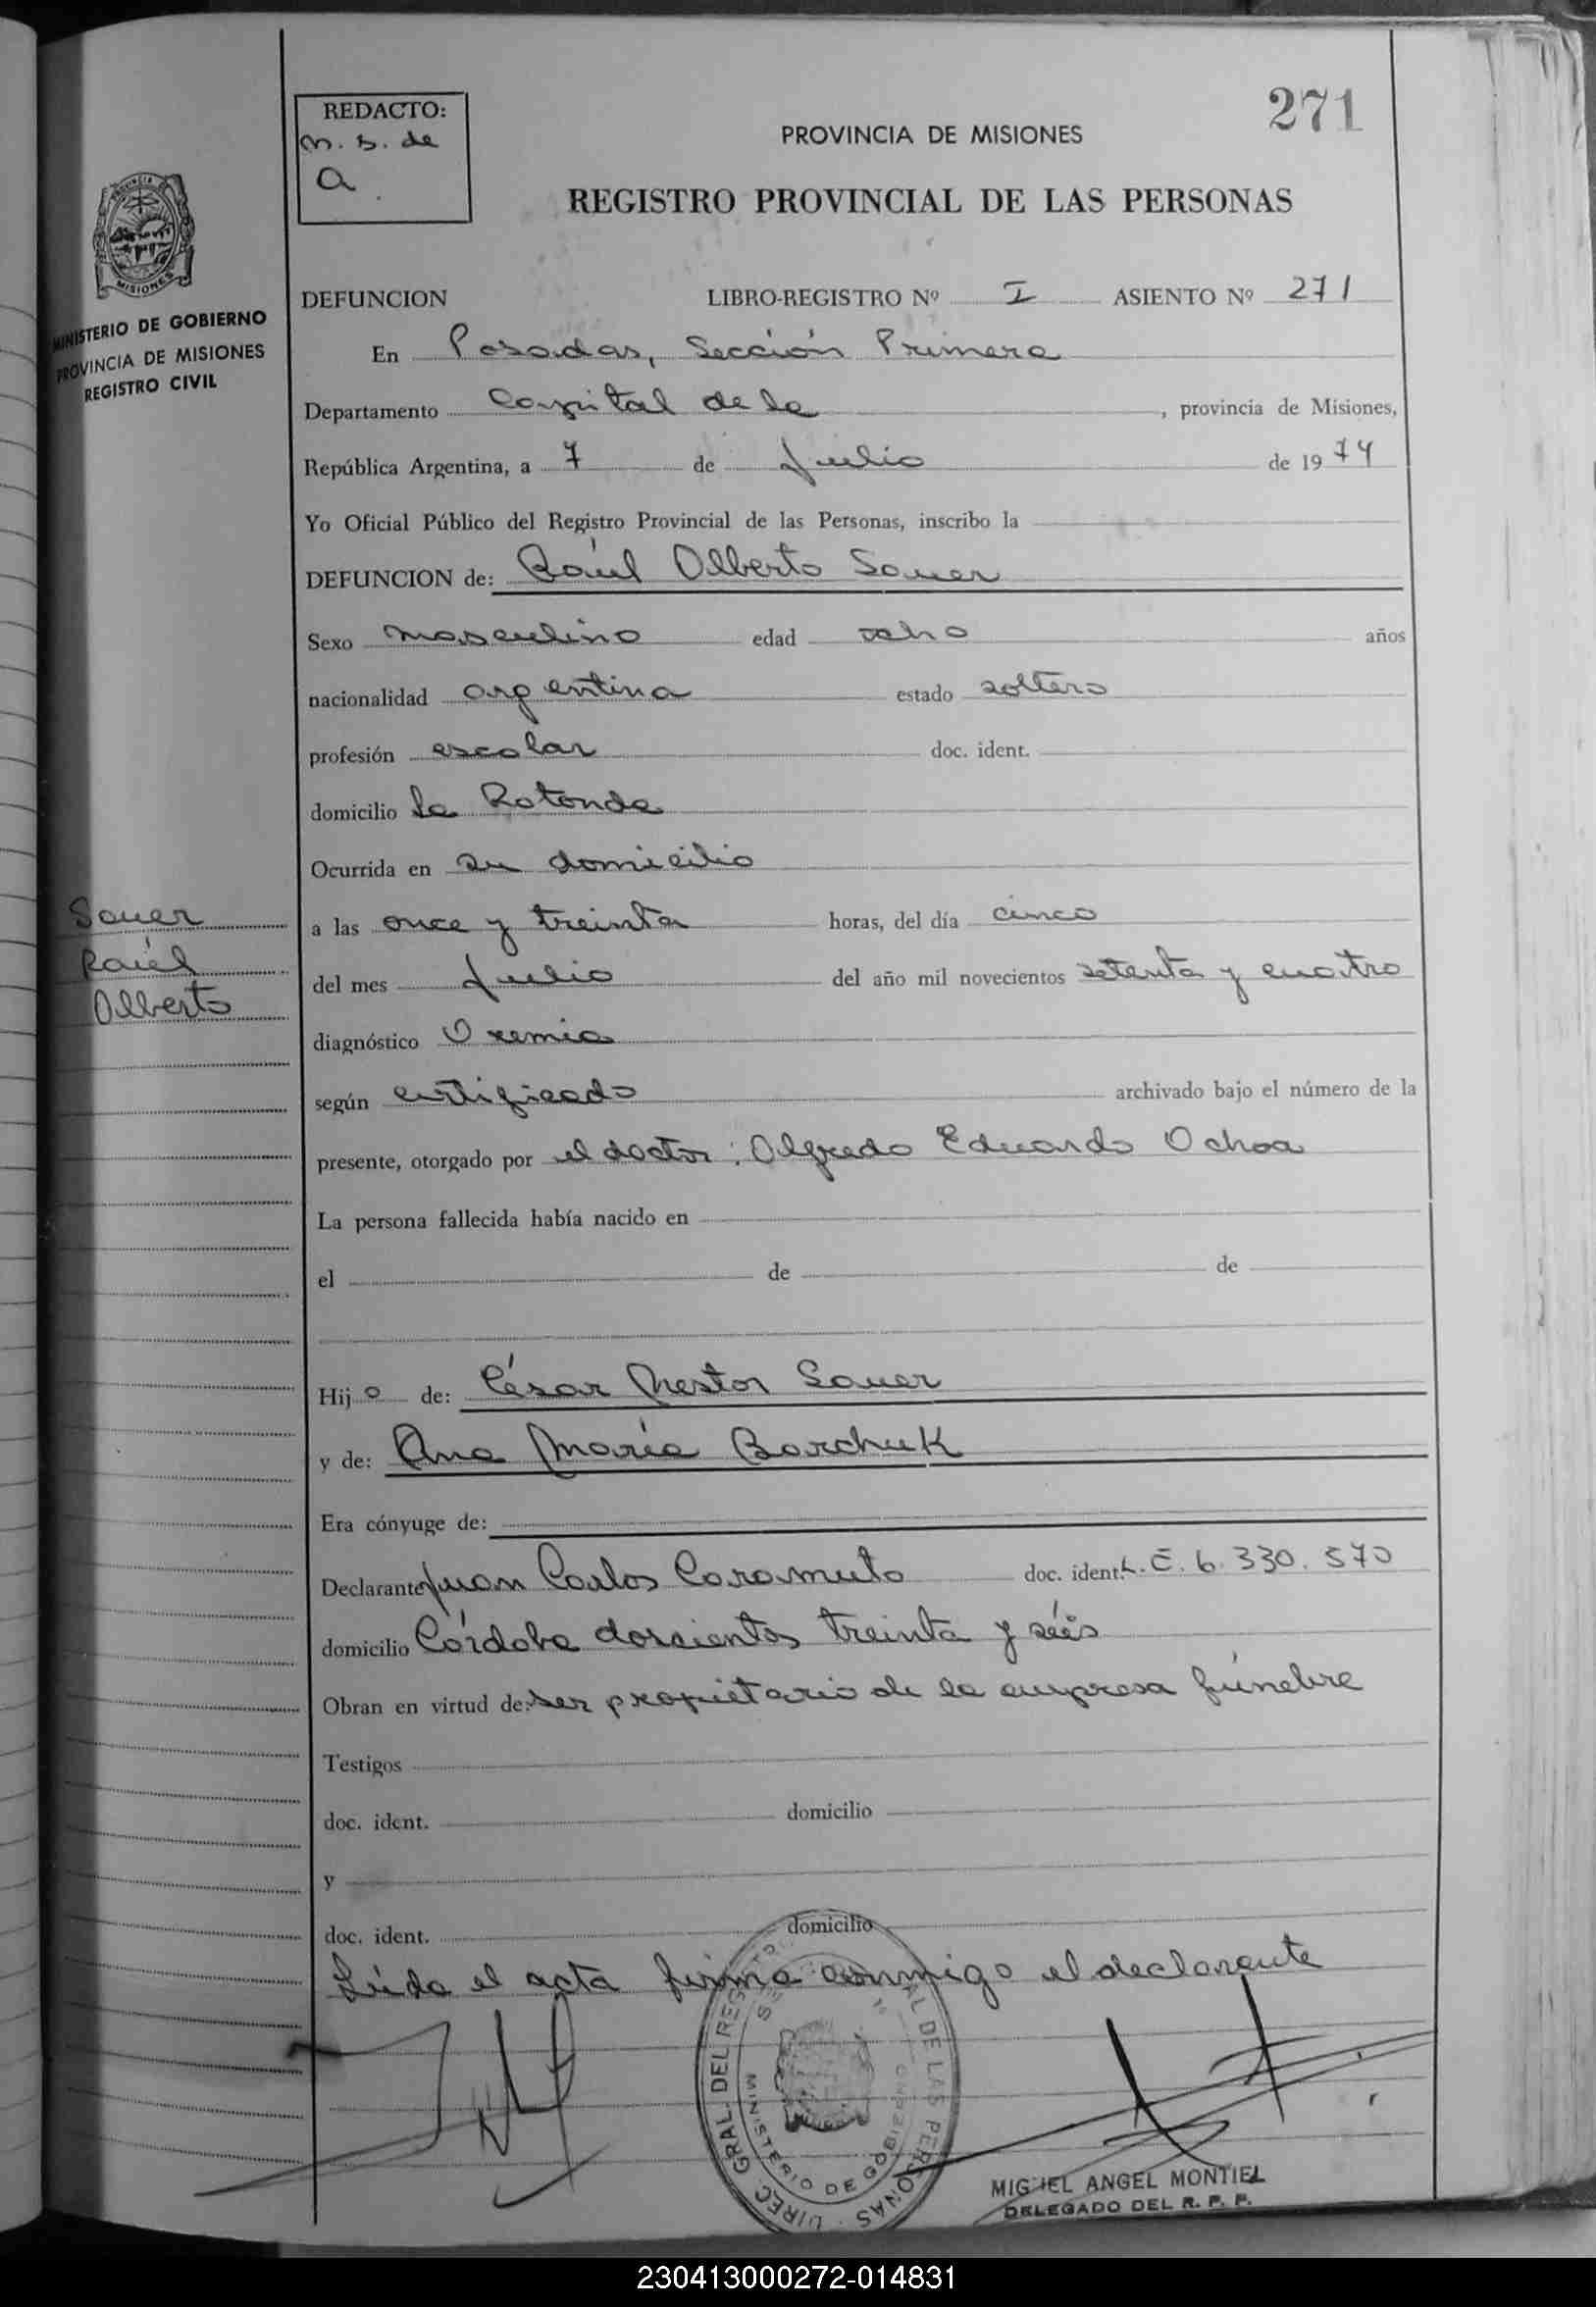 271
REDACTO:
m. s. de
a.
PROVINCIA DE MISIONES
REGISTRO PROVINCIAL DE LAS PERSONAS
MISIONES
MINISTERIO DE GOBIERNO
PROVINCIA DE MISIONES
REGISTRO CIVIL
DEFUNCION LIBRO-REGISTRO Nº I ASIENTO Nº 271
En Posadas, Sección Primera
Departamento Capital de la, provincia de Misiones,
República Argentina, a 7 de Julio de 1974
Yo Oficial Público del Registro Provincial de las Personas, inscribo la
DEFUNCION de: Raúl Alberto Sauer
Sexo masculino edad ocho años
nacionalidad argentina estado soltero
profesión escolar doc. ident.
domicilio La Rotonda
Ocurrida en su domicilio
a las once y treinta horas, del día cinco
del mes Julio del año mil novecientos setenta y cuatro
Sauer
Raúl
Alberto
diagnóstico Uremia
según certificado archivado bajo el número de la
presente, otorgado por el doctor: Alfredo Eduardo Ochoa
La persona fallecida había nacido en
el de de
Hijo de: César Nestor Sauer
y de: Ana María Barchuk
Era cónyuge de:
Declarante Juan Carlos Caramuto doc. ident. L. E. 6.330.570
domicilio Córdoba doscientos treinta y séis
Obran en virtud de: ser propietario de la empresa fúnebre
Testigos
doc. ident. domicilio
y
doc. ident. domicilio
Leída el acta firma conmigo el declarante
DIREC. GRAL. DEL REGISTRO DE LAS PERSONAS
MINISTERIO DE GOBIERNO
MIGUEL ANGEL MONTIEL
DELEGADO DEL R. P. P.
230413000272-014831